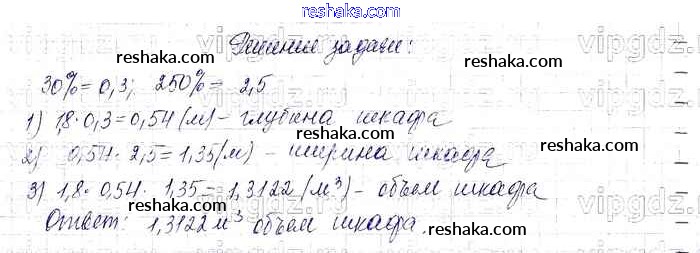 reshaka.com
Решение задачи:
vipgdz.
reshaka.com reshaka.com
30%=0,3; 250%= 2,5
1) 1,8·0,3=0,54 (м)- глубина шкафа
reshaka.com reshaka.com
2) 0,54· 2,5=1,35(м) - ширина шкафа
3) 1,8· 0,54· 1,35=1,3122 (м³)- объем шкафа
reshaka.com reshaka.com
Ответ: 1,3122м³ объем шкафа.
reshaka.com